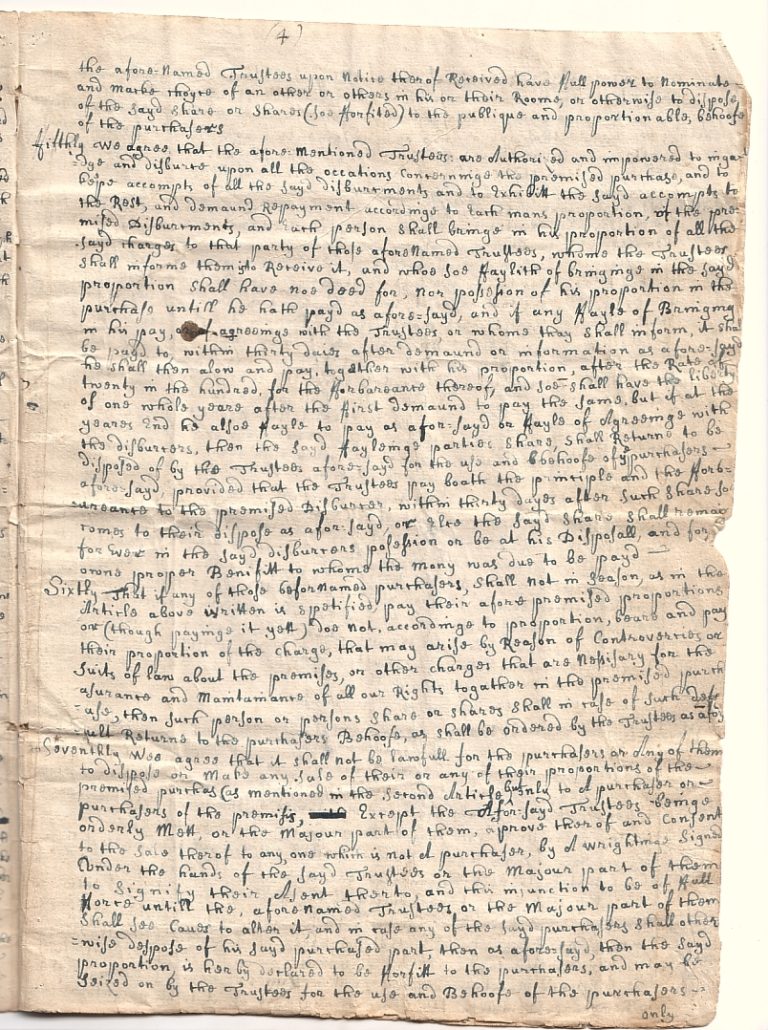 (4)
the afore-Named Trustees upon Notice therof Received have ffull power to Nominate
and Marke choyce of an other or others in his or their Roome, or otherwise to dispose
of the sayd share or shares (soe fforfited) to the publique and proportionable behoofe
of the purchasers
ffifthly We agree that the afore-Mentioned Trustees: are Authorized and impowered to inga
dge and disburce upon all the occations Concerninge the premised purchase, and to
keipe accompts of all the sayd disburcments and to Exhibitt the sayd accompts to
the Rest, and demaund Repayment accordinge to Each mans proportion, of the pre
mised Disburcments, and Each person shall bringe in his proportion of all the
sayd charges to that party of those aforeNamed Trustees, whome the Trustees
shall informe them to Receive it, and whoe soe ffaylith of bringinge in the sayd
proportion shall have noe deed for, nor possesion of his proportion in the
purchase untill he hath payd as afore-sayd, and if any ffayle of Bringing
in his pay, or of agreemge with the Trustees, or whome thay shall inform, it sha
be payd to, within thirty daies after demaund or information as afore-sayd
he shall then alow and pay, together with his proportion, after the Rate of
twenty in the hundred, for the fforbareance thereof, and soe shall have the liberty
of one whole yeare after the ffirst demaund to pay the same, but if at the
yeares End he alsoe ffayle to pay as afor-sayd or ffayle of Agreemge with
the disburcers, then the sayd ffaylemge parties share, shall Returne to be
disposed of by the Trustees afore-sayd for the use and bbehoofe of ye purchasers
afore-sayd, provided that the Trustees pay boath the principle and the fforb-
=areance to the premised Disburcer, within thirty dayes after such share so
comes to their dispose as afor-sayd, or Elce the sayd share shall remai
for ever in the sayd disburcers posession or be at his Disposall, and for
owne proper Benifitt to whome the mony was due to be payd
Sixtly That if any of those beforNamed purchasers, shall not in season, as in the
Article above written is spetified pay their afore premised proportions
or (though payinge it yett) doe not, accordinge to proportion, beare and pay
their proportion of the charge, that may arise by Reason of Controvercies or
suits of law about the premises, or other charges that are Nessisary for the
asurance and Maintainance of all our Rights together in the premised purch
=ase, then such person or persons share or shares shall in case of such defa
=ult Returne to the purchasers Behoofe, as shall be ordered by the Trustees as afor
Seventhly Wee agree that it shall not be lawfull for the purchasers or Any of them
to dispose or Make any sale of their or any of their proportions of the
premised purchas (as mentioned in the second Article but only to A purchaser or
purchasers of the premisis, Except the Afor-sayd Trustees beinge
orderly Mett, or the Majour part of them, aprove therof and Consent
to the sale therof to any one which is not A purchaser, by A wrightinge Signed
Under the hands of the sayd Trustees or the Majour part of them
to Signify their Asent therto, and this injunction to be of ffull
fforce untill the, aforeNamed Trustees or the Majour part of them
shall see Caues to alter it, and in case any of the sayd purchasers shall other
=wise despose of his sayd purchased part, then as afore-sayd, then the sayd
proportion, is herby declared to be fforfitt to the purchasers, and may be
Seized on by the Trustees for the use and Behoofe of the purchasers
only